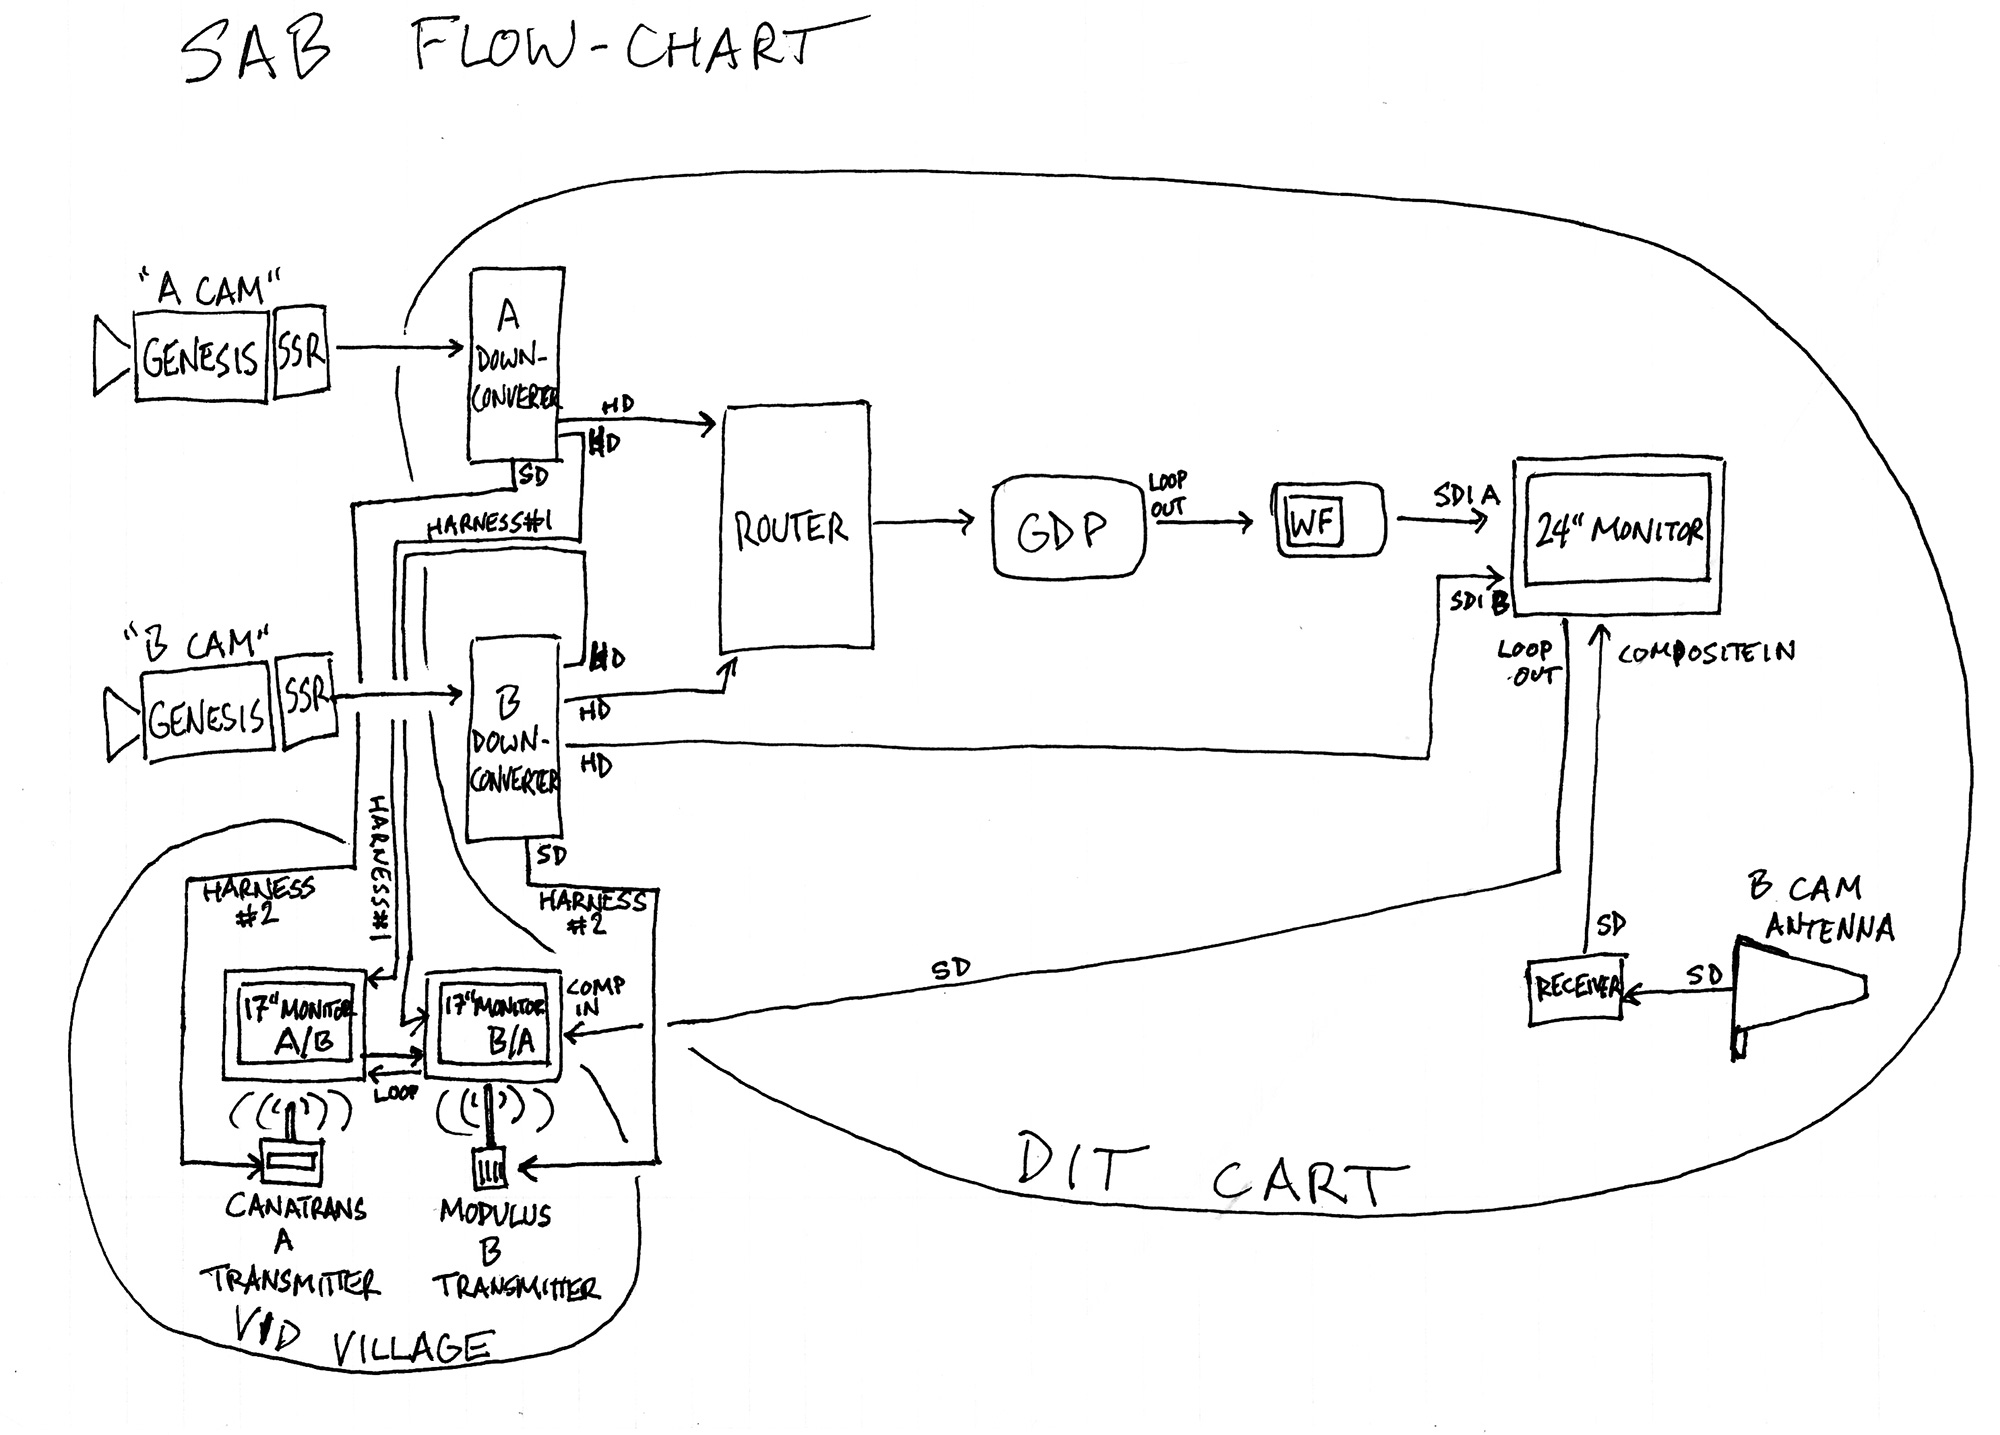 SAB FLOW-CHART
"A CAM"
GENESIS
SSR
A
DOWN-
CONVERTER
HD
HD
SD
HARNESS#1
ROUTER
GDP
LOOP
OUT
WF
SDI A
24" MONITOR
SDI B
LOOP
OUT
COMPOSITE IN
"B CAM"
GENESIS
SSR
B
DOWN-
CONVERTER
HD
HD
HD
SD
HARNESS
#2
HARNESS#1
HARNESS
#2
17" MONITOR
A/B
17" MONITOR
B/A
COMP
IN
LOOP
SD
SD
RECEIVER
SD
B CAM
ANTENNA
CANATRANS
A
TRANSMITTER
MODULUS
B
TRANSMITTER
VID VILLAGE
DIT CART